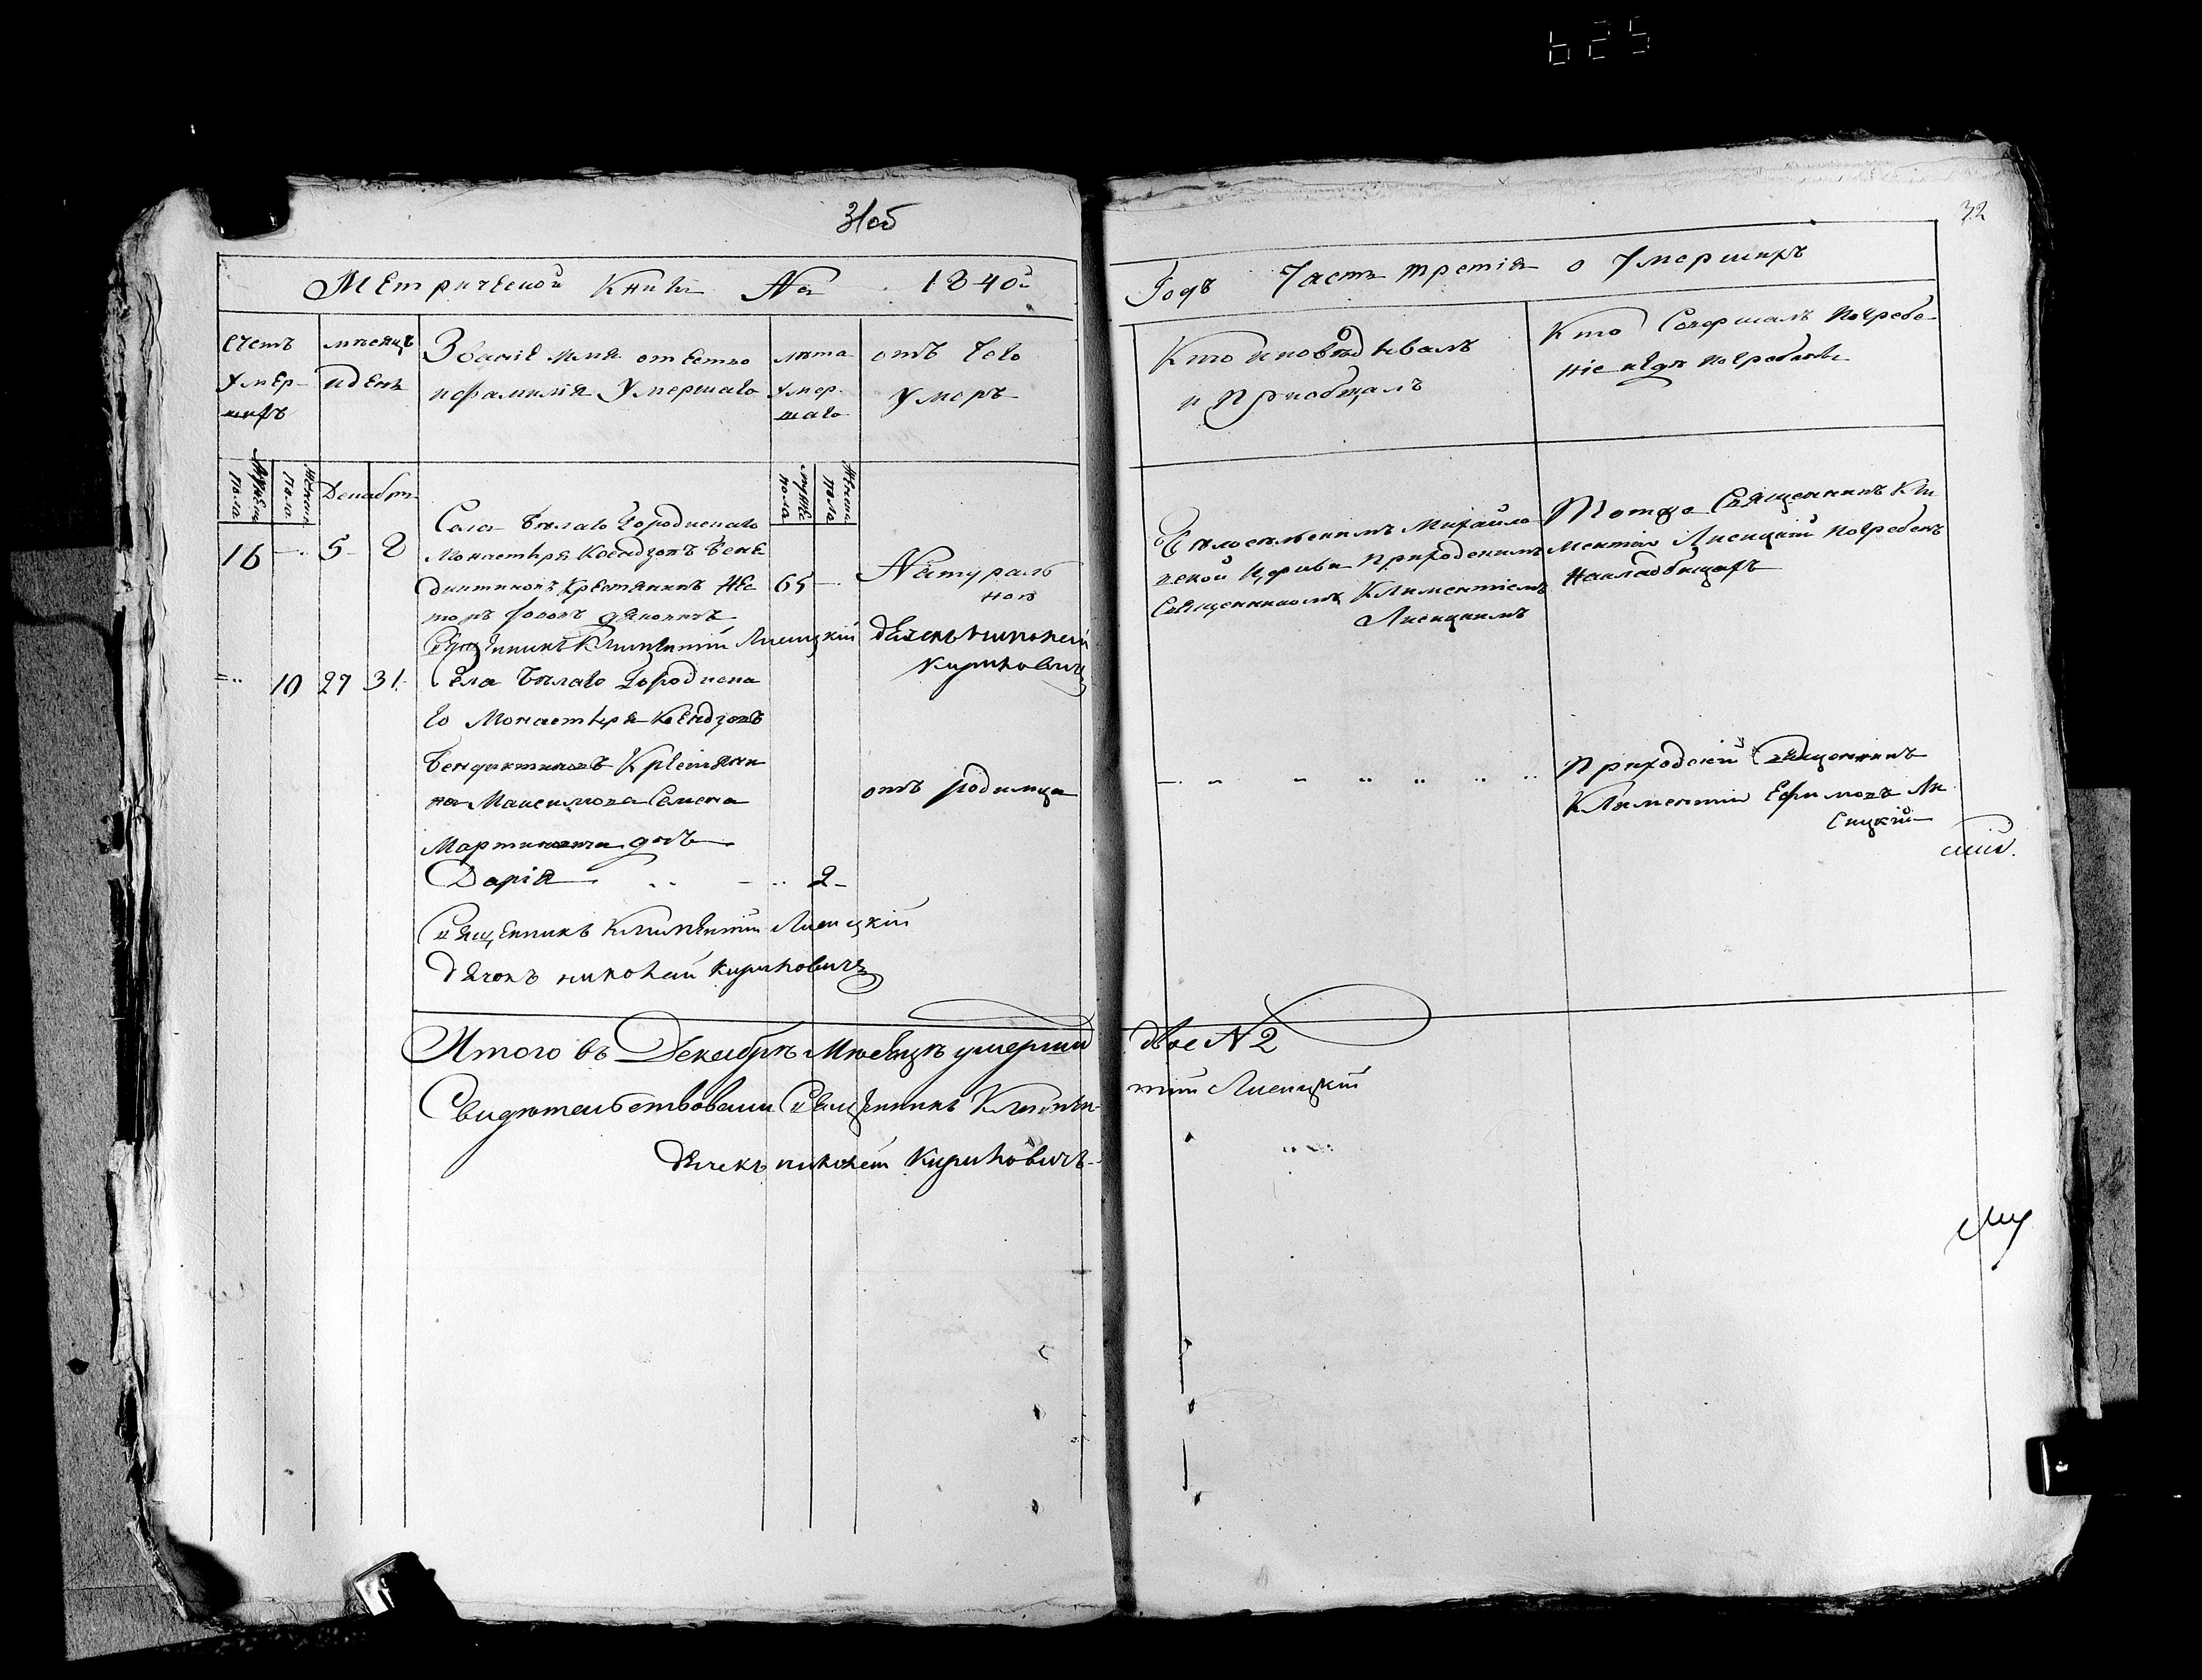 625
31об
32
Метрической Книги На 1840й
Годъ Часть третія о Умершихъ
счетъ умер-шихъ
мѣсяцъ и день
Званіе имя отество и фамилія Умершаго
лѣта умер-шаго
отъ чево умеръ
Кто исповѣдывалъ и Приобщалъ
Кто Совершалъ Погребе-ніе и гдѣ погребены
Мужеска пола
Женска Пола
Декабрь
мужес пола
Женск пола
Села Бѣлаго Городиского
16 5 2 Монастыря Ксендзовъ Бене
диктиновъ Крестянинъ Нес 65 Натураль
торъ но
Священникъ Климентий Лисицкій дьячекъ николай
Кириковичъ
Белосельскимъ Михайло
вской Церкви Приходскимъ
Священникомъ Климентіемъ
Лисицкимъ
Тотже Священникъ Кли
ментій Лисицкій погребенъ
На кладбищахъ
10 29 31 Села Бѣлаго Городиска
го Монастыря Ксендзовъ
Бендиктиновъ Крестяни
на Максимова Семена отъ родимца
Мартиновича дочь
Дарія 2
Приходскій Священникъ
Климентій Ефимовъ Ли
сицкій
Священникъ Климентий Лисицкій
дьячокъ николай Кириковичъ
Итого въ Декабрѣ Мѣсяцѣ умерших двое N 2
Свидѣтельствовали Священникъ Климен-тий Лисицкій
дьячекъ николай Кириковичъ